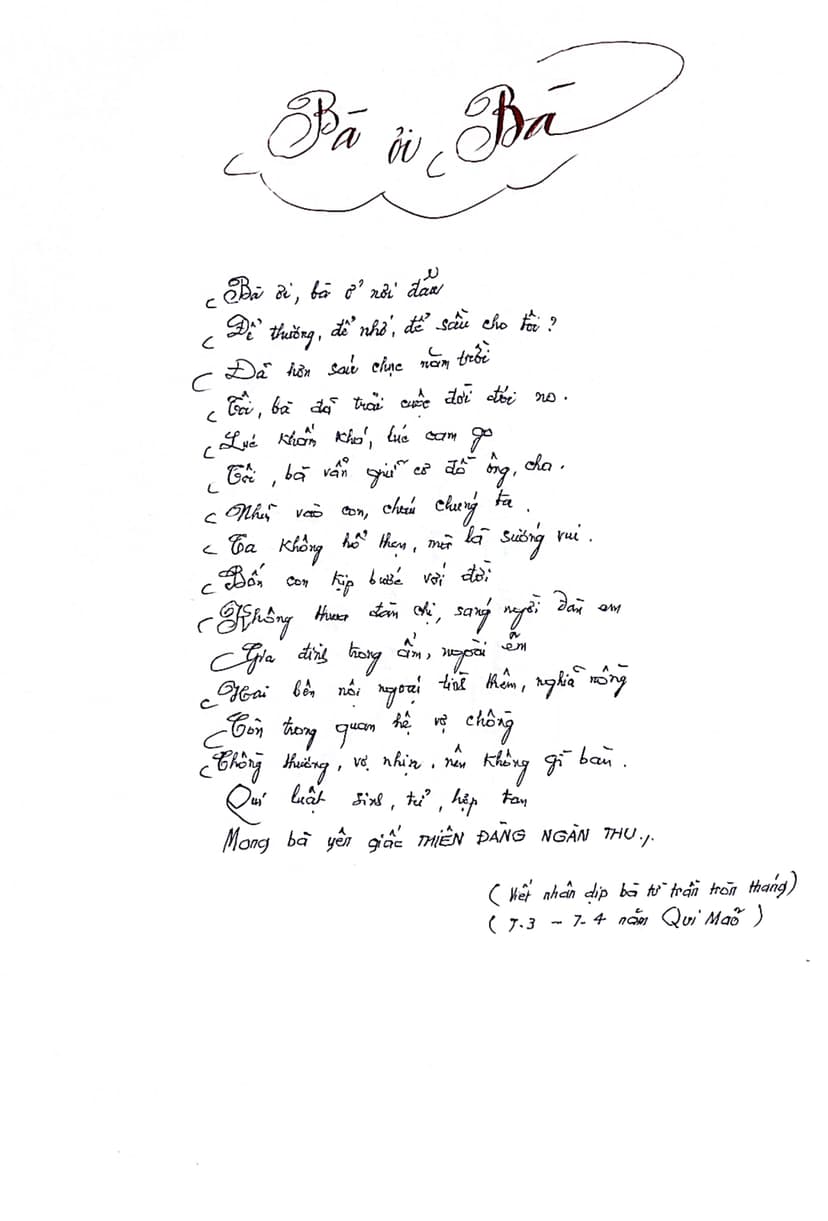 Bà ơi Bà
Bà ơi, bà ở nơi đâu
Để thương, để nhớ, để sầu cho tôi?
Đã hơn sáu chục năm trời
Tôi, bà đã trải cuộc đời đói no.
Lúc khốn khó, lúc cam go
Tôi, bà vẫn giữ cơ đồ ông, cha.
Nhìn vào con, cháu chúng ta.
Ta không hổ thẹn, mà là sướng vui.
Bốn con kịp bước với đời
Không thua đàn chị, sánh người đàn em
Gia đình trong ấm, ngoài êm
Hai bên nội ngoại tình thâm, nghĩa nồng
Còn trong quan hệ vợ chồng
Chồng thương, vợ nhịn, nên không gì bàn.
Qui luật sinh, tử, hợp tan
Mong bà yên giấc THIÊN ĐÀNG NGÀN THU./.
(Viết nhân dịp bà từ trần tròn tháng)
(7.3 - 7-4 năm Quí Mão)